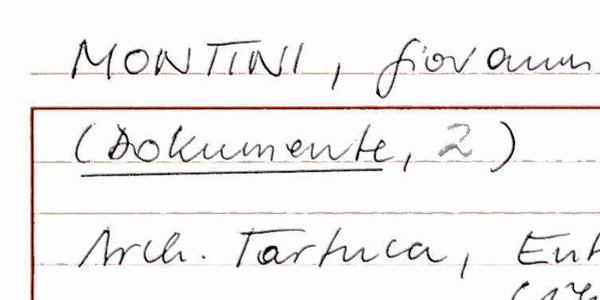 MONTINI, Giovanni
(Dokumente, 2)
Arch. Tartuca, Ent
(17